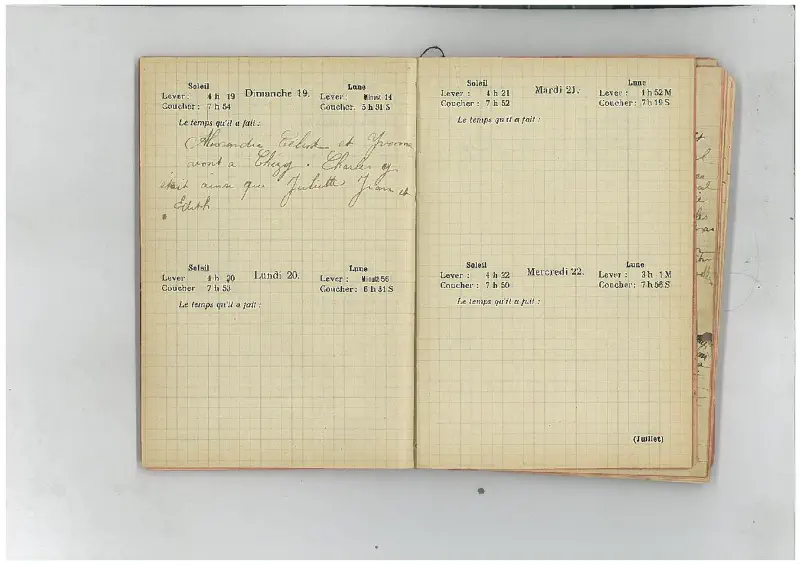 Soleil
Lever : 4 h 19
Coucher : 7 h 54
Dimanche 19.
Lune
Lever : Minuit 14
Coucher. 5 h 31 S
Le temps qu'il a fait :
Alexandre et Yvonne
vont a Chézy. Charles y
était ainsi que Juliette Jean et
Edith
Soleil
Lever 4 h 20
Coucher 7 h 53
Lundi 20.
Lune
Lever : Minuit 56
Coucher : 6 h 31 S
Le temps qu'il a fait :
Soleil
Lever : 4 h 21
Coucher : 7 h 52
Mardi 21.
Lune
Lever : 1 h 52 M
Coucher : 7 h 19 S
Le temps qu'il a fait :
Soleil
Lever : 4 h 22
Coucher : 7 h 50
Mercredi 22.
Lune
Lever : 3 h 1 M
Coucher : 7 h 56 S
Le temps qu'il a fait :
(Juillet)